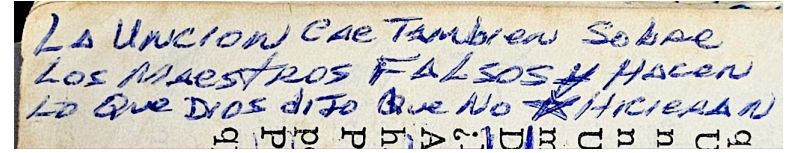 LA UNCION CAE TAMBIEN SOBRE
LOS MAESTROS FALSOS Y HACEN
LO QUE DIOS dIJO QUE NO HICIERAN